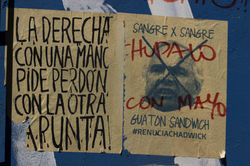 LA DERECHA
CON UNA MANO
PIDE PERDÓN
CON LA OTRA
APUNTA!
SANGRE X SANGRE
CON MAYO
GUATON SANDWICH
#RENUCIACHADWICK